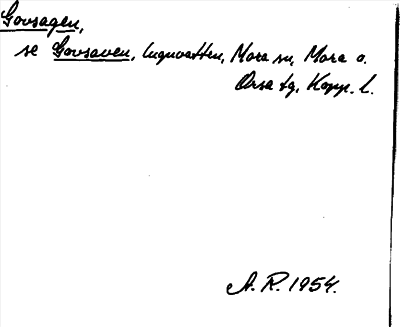 Govsagen,
se Govsaven, lugnvatten, Mora sn, Mora o.
Orsa tg, Kopp. l.
A. R. 1954.